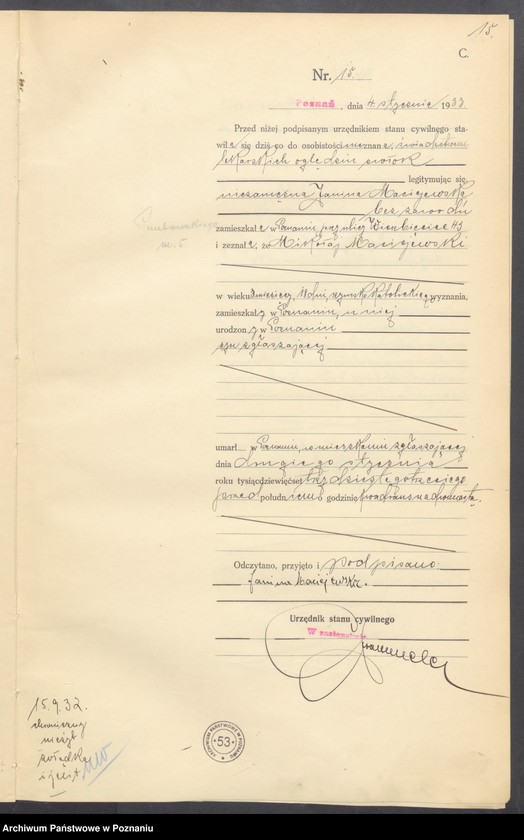 15.
C.
Nr. 15.
Poznań, dnia 4 stycznia 1933
Przed niżej podpisanym urzędnikiem stanu cywilnego sta-
wiła się dziś, co do osobistości nieznana, świadectwem
lekarskich oględzin zwłok
legitymując się,
niezamężna Janina Maciejewska
bez zawodu
zamieszkała w Poznaniu przy ulicy Wierzbięcice 43
i zeznała, że Mikołaj Maciejewski
w wieku 3 miesięcy, 18 dni rzymsko katolickiego wyznania,
zamieszkały w Poznaniu, u niej
urodzony w Poznaniu
syn zgłaszającej
umarł w Poznaniu, w mieszkaniu zgłaszającej
dnia drugiego stycznia
roku tysiącdziewięćset trzydziestego trzeciego
przed południem o godzinie kwadrans na dwunastą.
Odczytano, przyjęto i podpisano:
Janina Maciejewska.
Urzędnik stanu cywilnego
W zastępstwie
15.9.32.
chroniczny
nieżyt
żołądka
i jelit
ARCHIWUM PAŃSTWOWE W POZNANIU
53
Archiwum Państwowe w Poznaniu